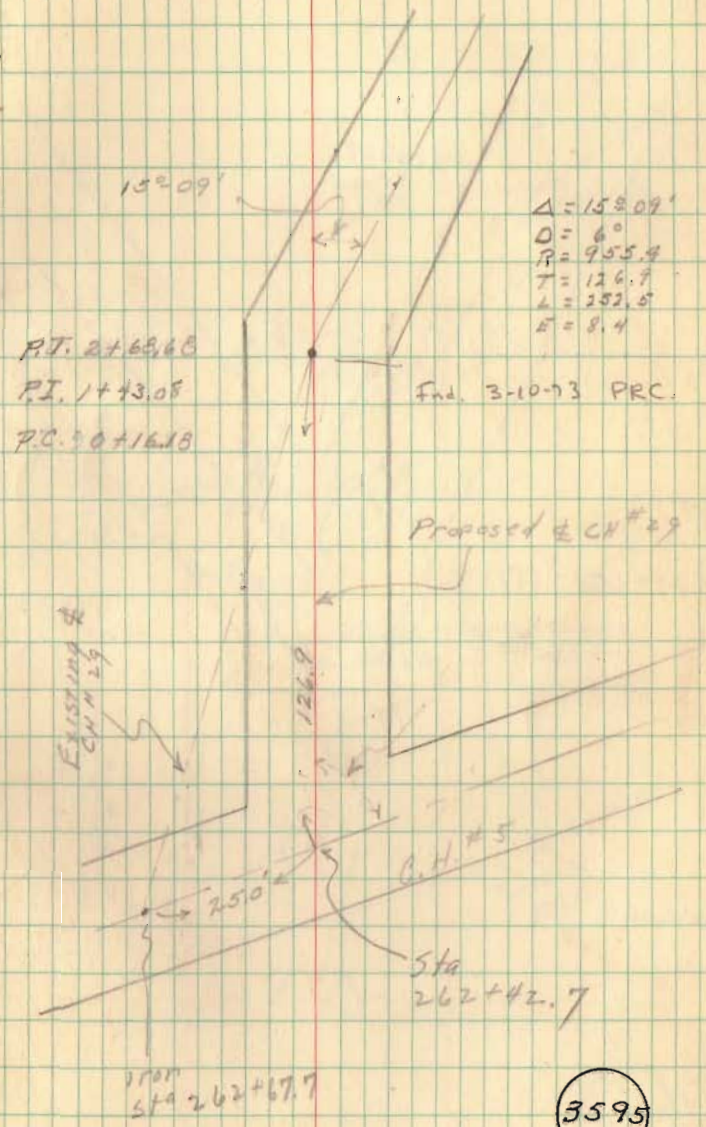 15°09'
Δ = 15°09'
D = 6°
R = 955.4
T = 126.9
L = 252.5
E = 8.4
P.T. 2+68.68
P.I. 1+43.08
P.C. 0+16.18
Fnd. 3-10-73 PRC.
Proposed ℄ CH #29
Existing ℄
CH # 29
126.9
C.H. #5
25.0'
Sta
262+42.7
Iron
Sta 262+67.7
3595